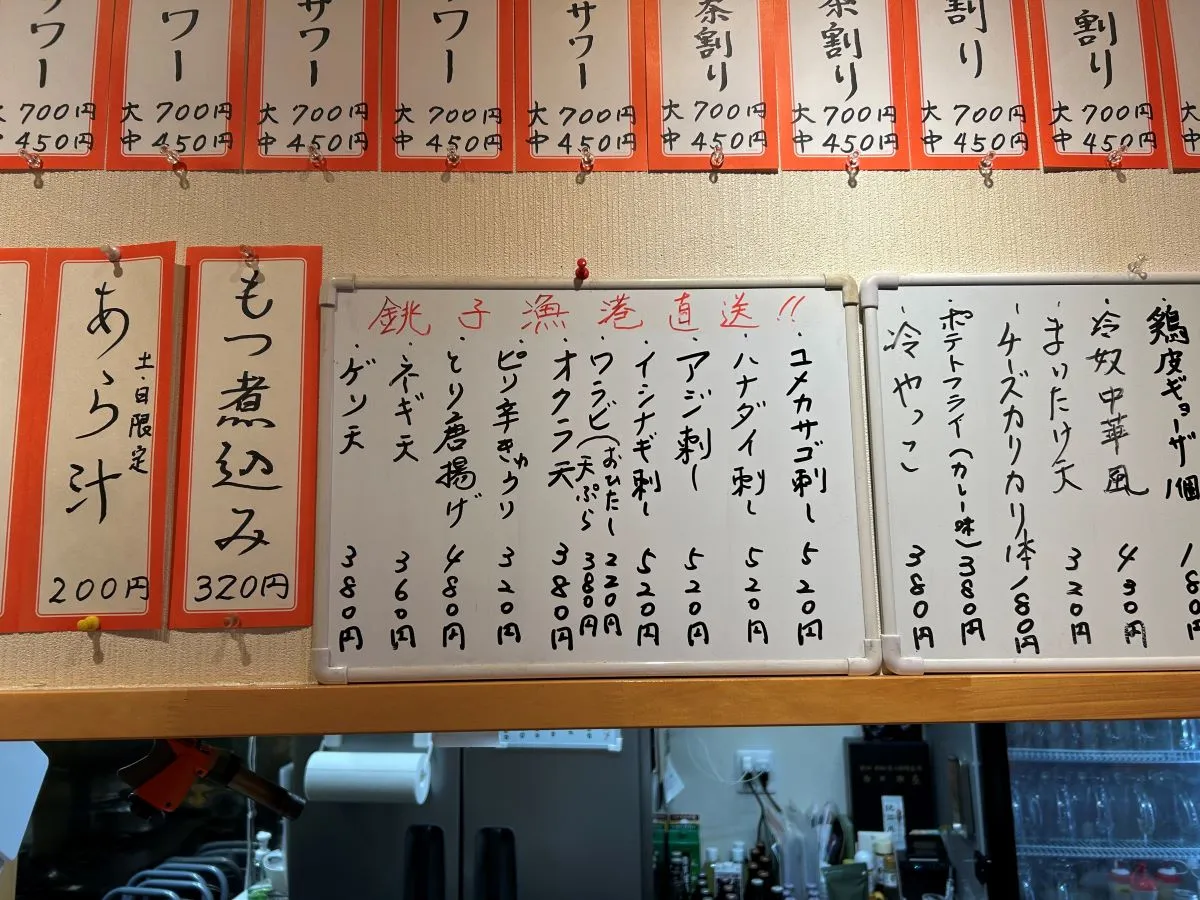 ワー
大 700円
中 450円
ワー
大 700円
中 450円
サワー
大 700円
中 450円
ワー
大 700円
中 450円
サワー
大 700円
中 450円
茶割り
大 700円
中 450円
茶割り
大 700円
中 450円
割り
大 700円
中 450円
割り
大 700円
中 450円
大
中
もつ煮込み
320円
土・日限定
あら汁
200円
銚子漁港直送!!
・ユメカサゴ刺し 520円
・ハナダイ刺し 520円
・アジ刺し 520円
・イシナギ刺し 520円
・ワラビ(おひたし 220円
天ぷら 380円
・オクラ天 380円
・ピリ辛きゅうり 320円
・とり唐揚げ 480円
・ネギ天 360円
・ゲソ天 380円
・鶏皮ギョーザ1個 180円
・冷奴中華風 430円
・まいたけ天 320円
・チーズカリカリ1本180円
・ポテトフライ(カレー味)380円
・冷やっこ 380円